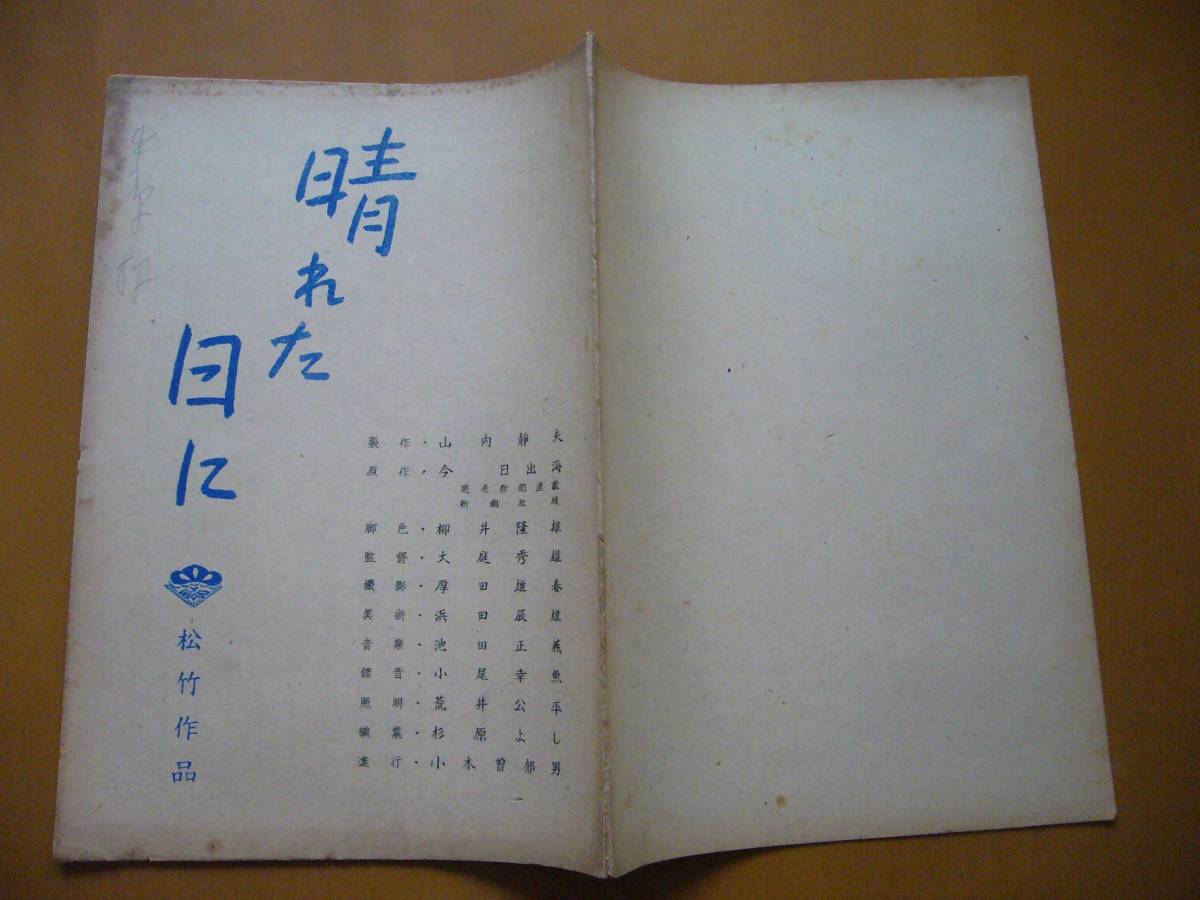 晴れた
日に
松竹作品
製作・山内靜夫
原作・今日出海
脚色・柳井隆雄
監督・大庭秀雄
撮影・厚田雄春
美術・浜田辰雄
音楽・池田正義
録音・小尾幸魚
照明・荒井公平
編集・杉原よし
進行・小木曽郁男